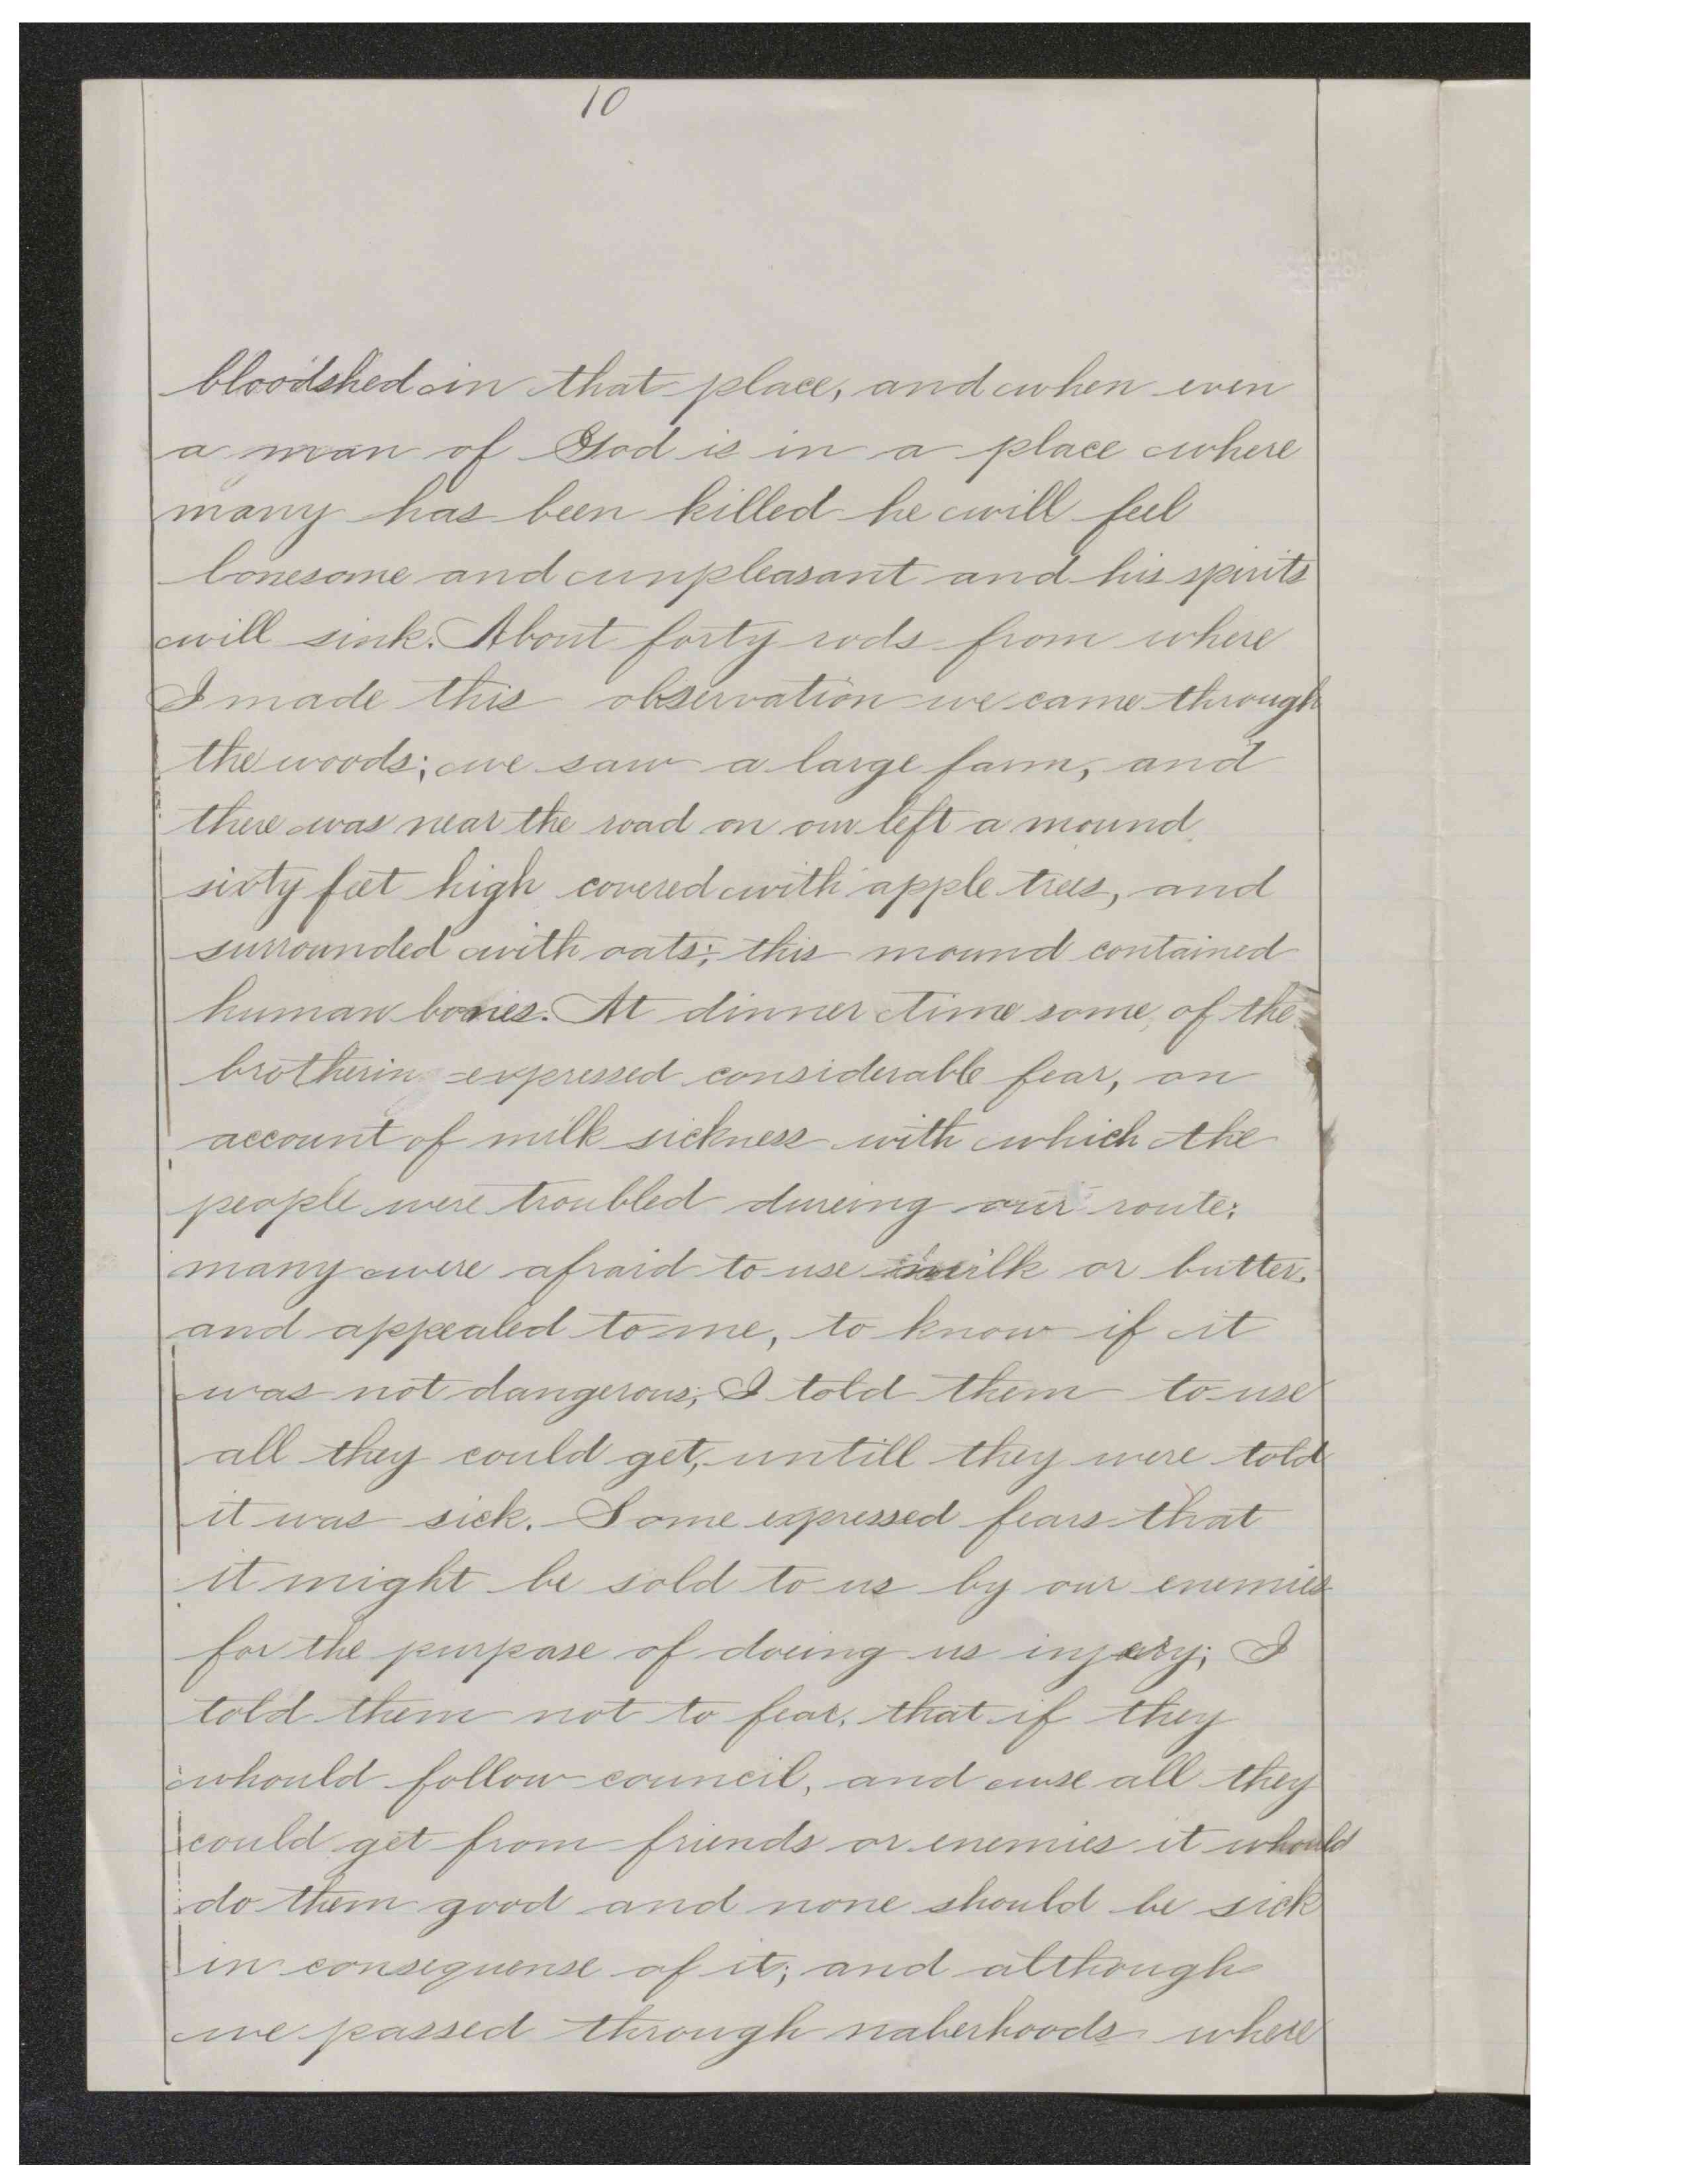 10
bloodshed in that place, and when even
a man of God is in a place where
many has been killed he will feel
lonesome and unpleasant and his spirits
will sink. About forty rods from where
I made this observation we came through
the woods; we saw a large farm, and
there was near the road on our left a mound
sixty feet high covered with apple trees, and
surrounded with oats; this mound contained
human bones. At dinner time some of the
brotherin expressed considerable fear, on
account of milk sickness with which the
people were troubled dureing our route;
many were afraid to use milk or butter,
and appealed to me, to know if it
was not dangerous; I told them to use
all they could get, untill they were told
it was sick. Some expressed fears that
it might be sold to us by our enemies
for the purpose of doeing us injery; I
told them not to fear, that if they
whould follow council, and use all they
could get from friends or enemies it whould
do them good and none should be sick
in consequense of it; and although
we passed through naberhoods where